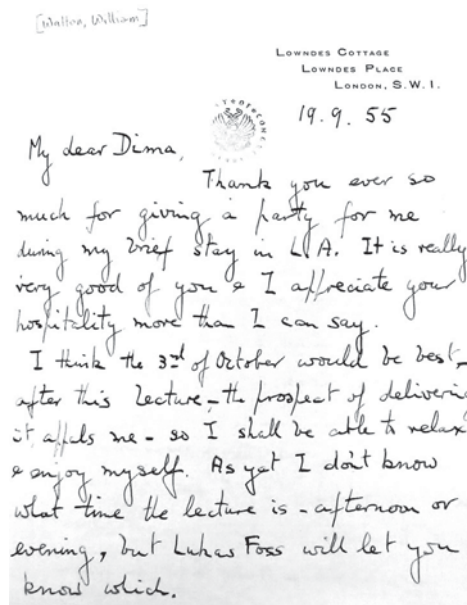 [Walton, William]
LOWNDES COTTAGE
LOWNDES PLACE
LONDON, S.W.1.
19.9.55
My dear Dima,
Thank you ever so
much for giving a party for me
during my brief stay in L.A. It is really
very good of you & I appreciate your
hospitality more than I can say.
I think the 3rd of October would be best -
after this lecture - the prospect of deliverin
it, appals me - so I shall be able to relax
& enjoy myself. As yet I don't know
what time the lecture is - afternoon or
evening, but Lukas Foss will let you
know which.